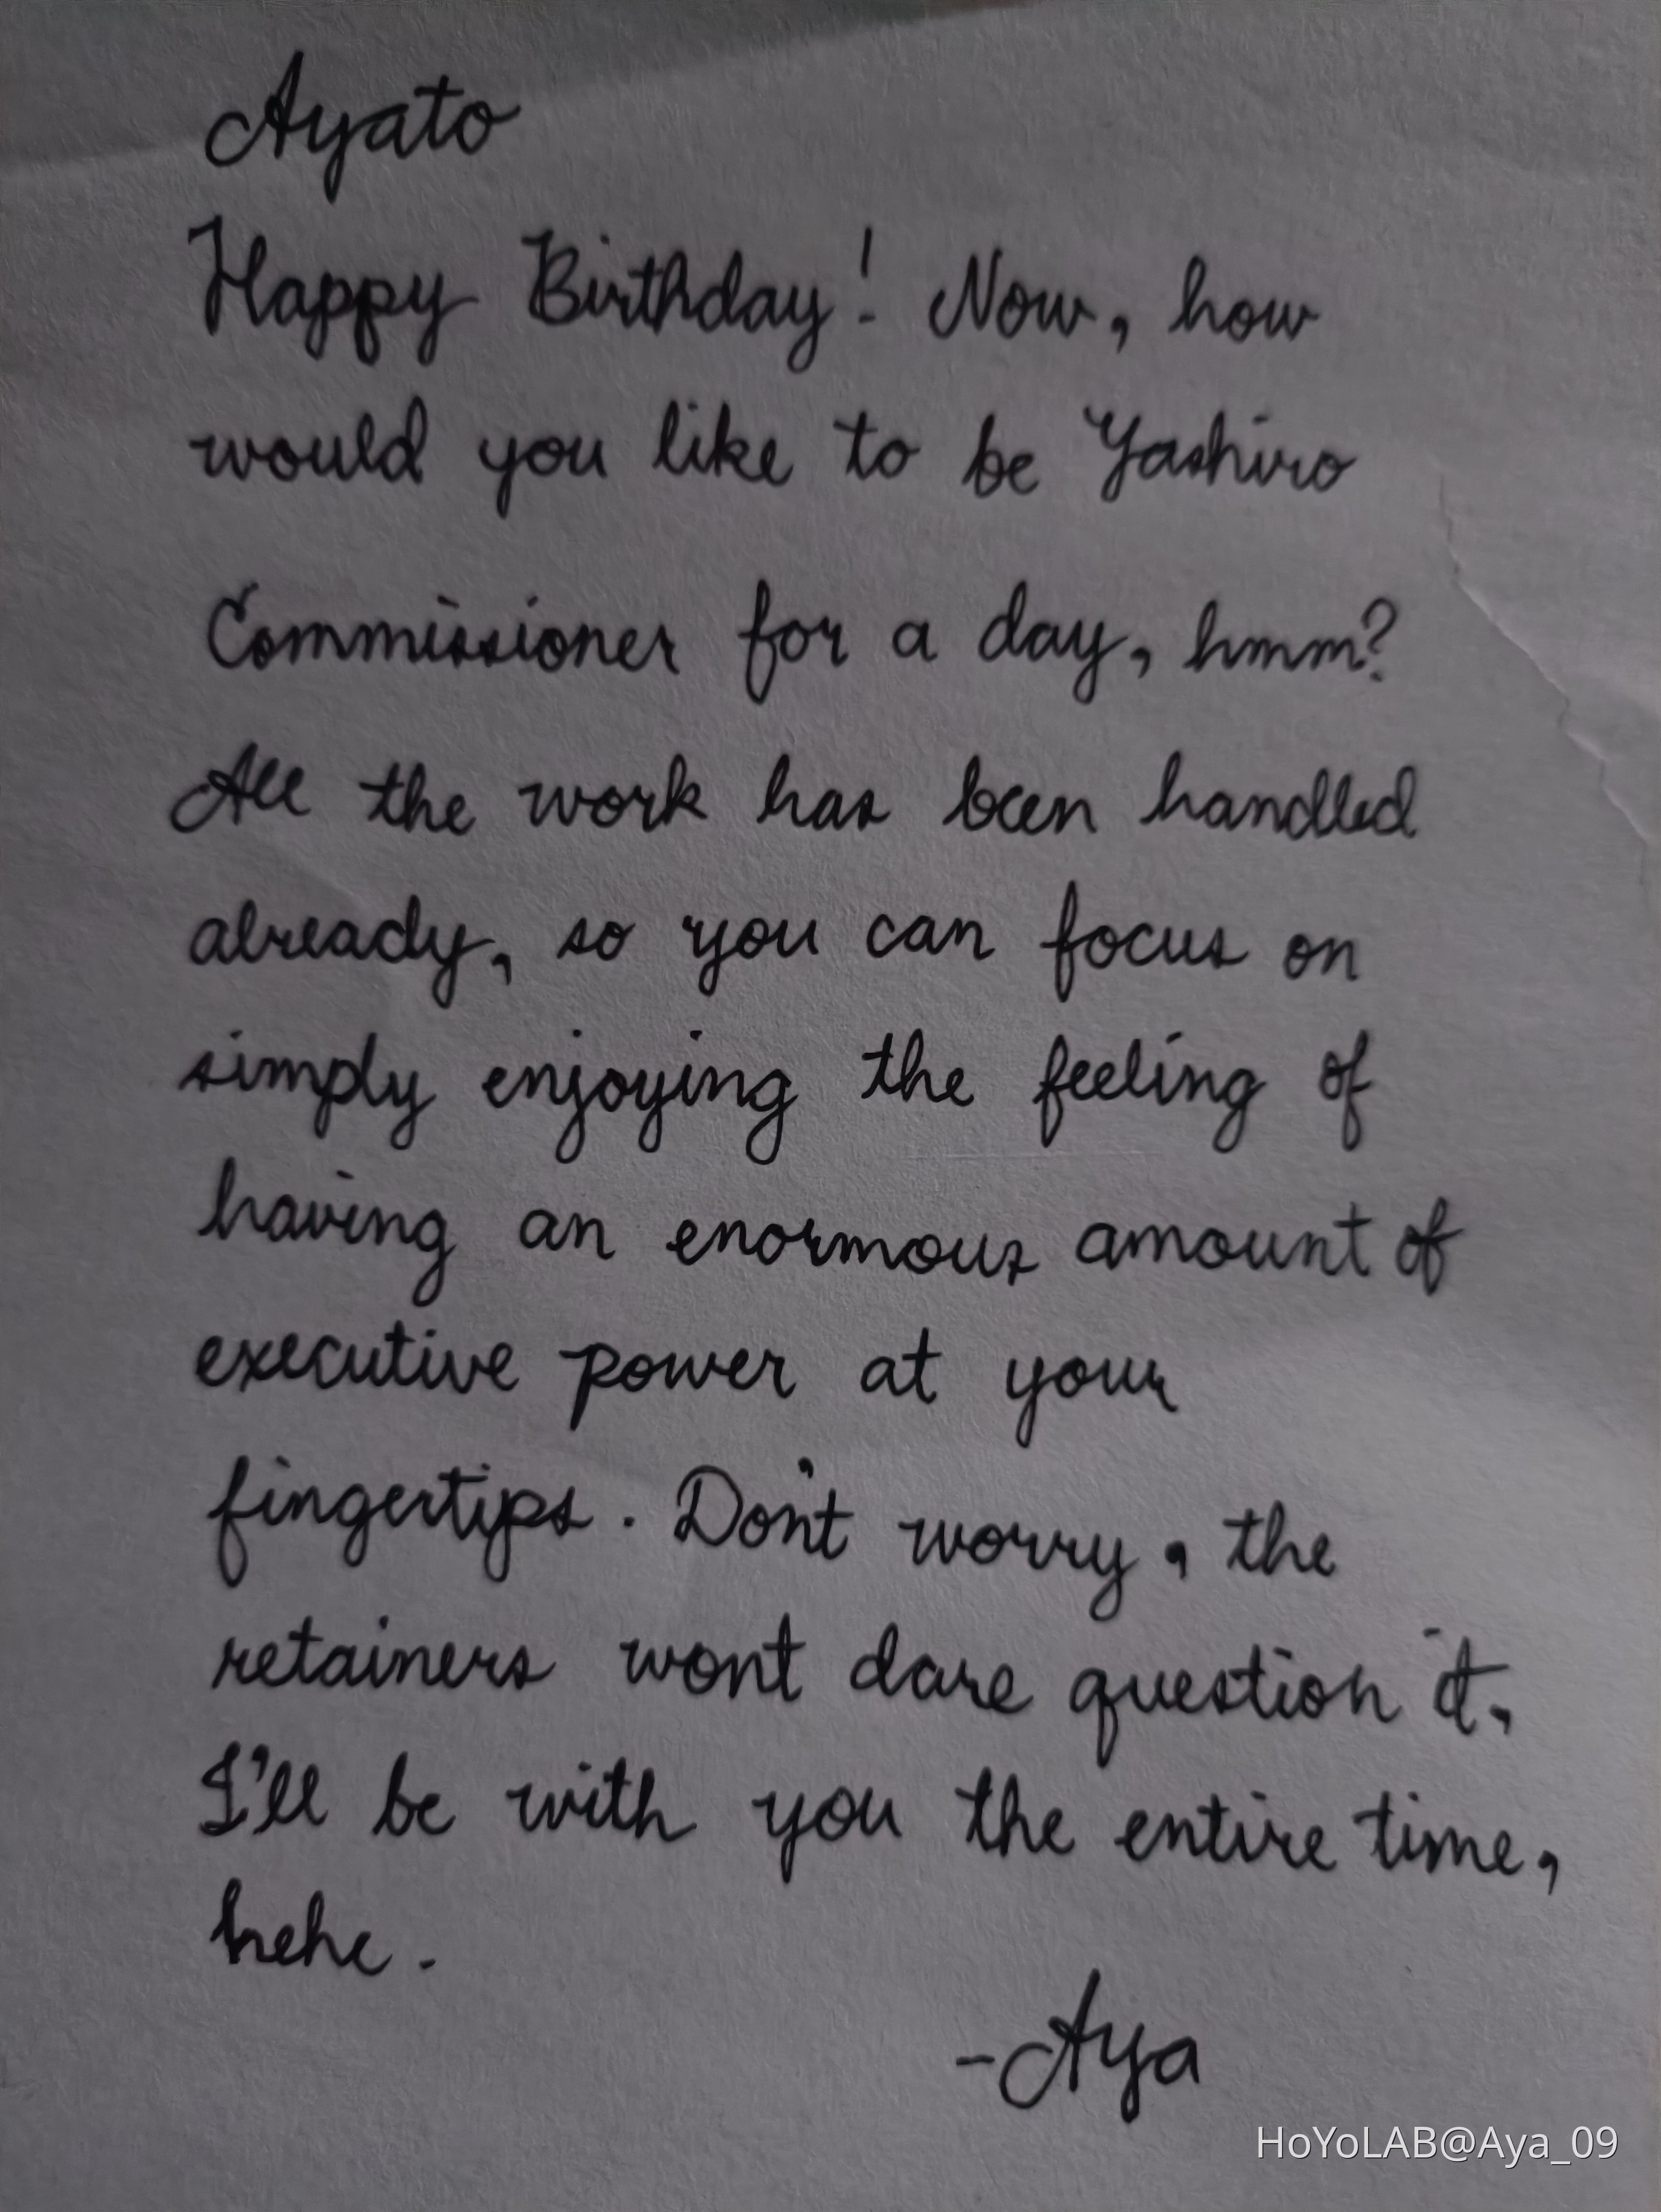 Ayato
Happy Birthday! Now, how
would you like to be Yashiro
Commissioner for a day, hmm?
All the work has been handled
already, so you can focus on
simply enjoying the feeling of
having an enormous amount of
executive power at your
fingertips. Don't worry, the
retainers wont dare question it,
I'll be with you the entire time,
hehe.
-Aya
HoYoLAB@Aya_09